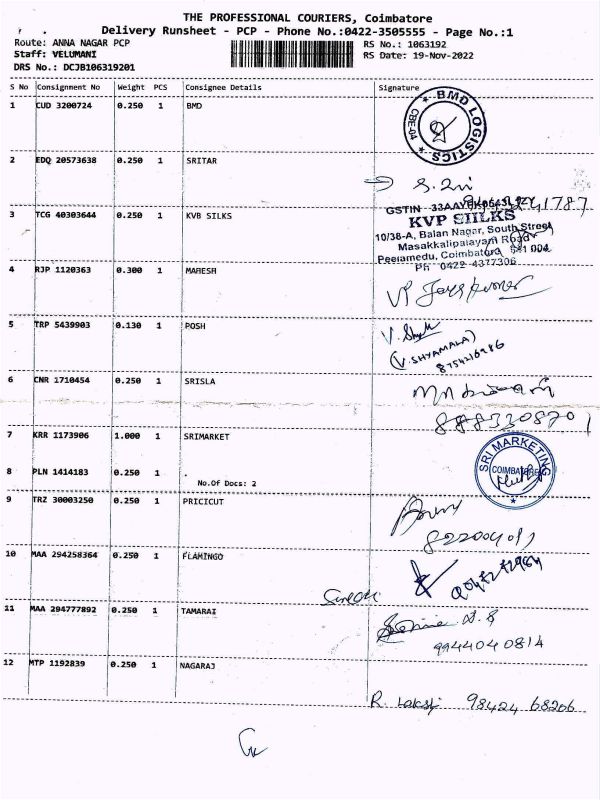 THE PROFESSIONAL COURIERS, Coimbatore
Delivery Runsheet - PCP - Phone No.:0422-3505555 - Page No.:1
Route: ANNA NAGAR PCP
RS No.: 1063192
Staff: VELUMANI
RS Date: 19-Nov-2022
DRS No.: DCJB106319201
S No Consignment No Weight PCS Consignee Details Signature
1 CUD 3200724 0.250 1 BMD
BMD LOGISTICS
CBE-04
2 EDQ 20573638 0.250 1 SRITAR
GSTIN
3 TCG 40303644 0.250 1 KVB SILKS
KVP SIILKS
10/38-A, Balan Nagar, South Street
Masakkalipalayam Road
Peelamedu, Coimbatore 641 004
Ph 0422 4377306
4 RJP 1120363 0.300 1 MAHESH
VP Jayakumar
5 TRP 5439903 0.130 1 POSH
(V.SHYAMALA)
8754216986
6 CNR 1710454 0.250 1 SRISLA
8883308701
7 KRR 1173906 1.000 1 SRIMARKET
SRI MARKETING
COIMBATORE
8 PLN 1414183 0.250 1 .
No.Of Docs: 2
9 TRZ 30003250 0.250 1 PRICICUT
10 MAA 294258364 0.250 1 FLAMINGO
11 MAA 294777892 0.250 1 TAMARAI
9944040814
12 MTP 1192839 0.250 1 NAGARAJ
R. Lakshi 98424 68206